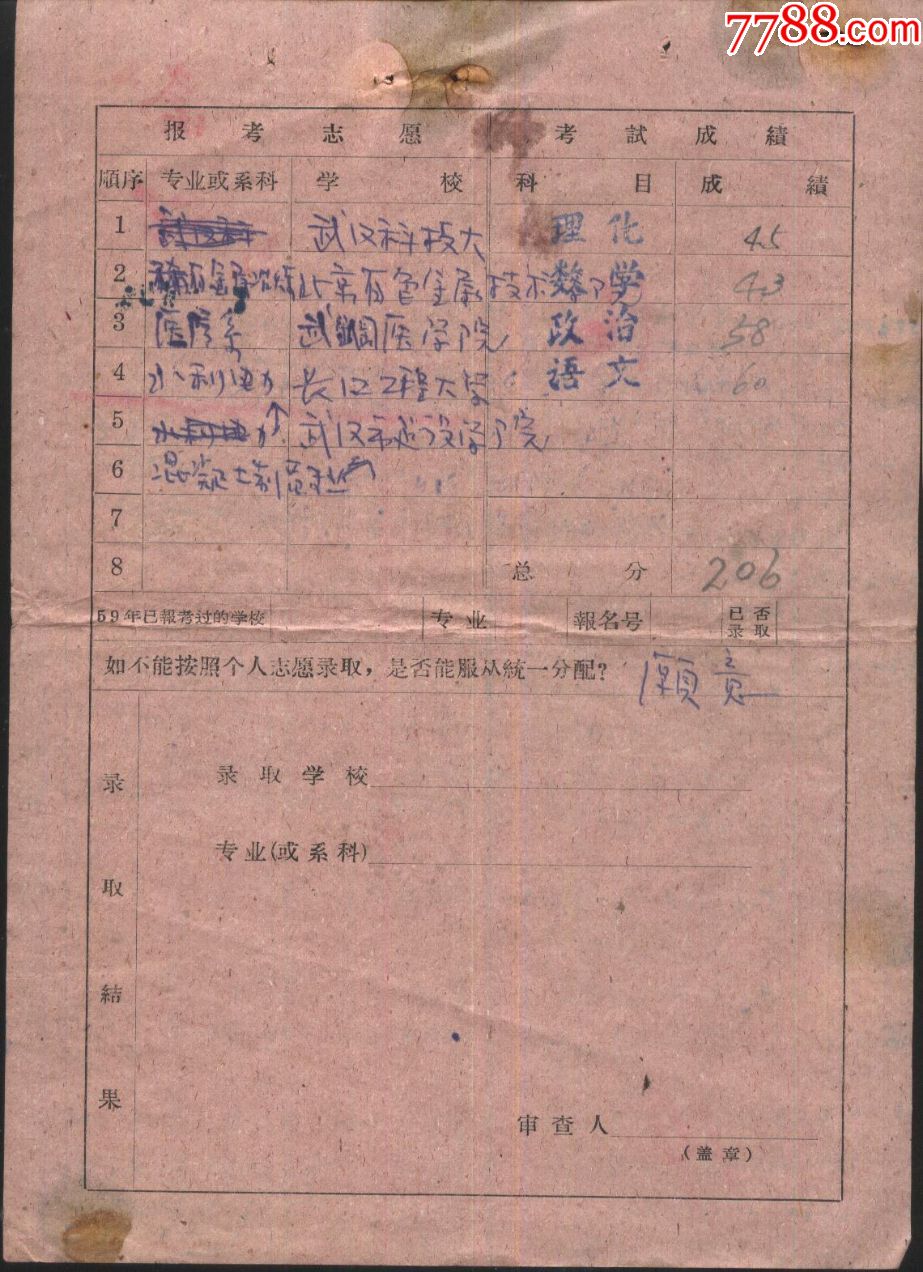 7788.com
报考志愿 考試成績
順序 专业或系科 学校 科目 成績
1 武汉科技大 理化 45
2 北京有色金属技术 数学 43
3 医疗系 武鋼医学院 政治 58
4 水利电力 长江工程大学 语文 60
5 水利电力 武汉市建设学院
6 混凝土制品
7
8 总分 206
59年已報考过的学校 专业 報名号 已否录取
如不能按照个人志愿录取，是否能服从統一分配？ 願意
录取結果
录取学校
专业(或系科)
审查人
(盖章)